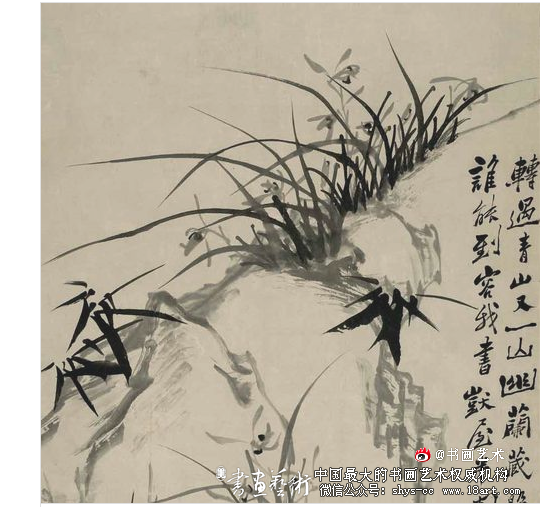 轉過青山又一山幽蘭藏
誰能到容我書獃屋
@书画艺术
書畫藝術
中国最大的书画艺术权威机构
微信公众号: shys-cc www.18art.com